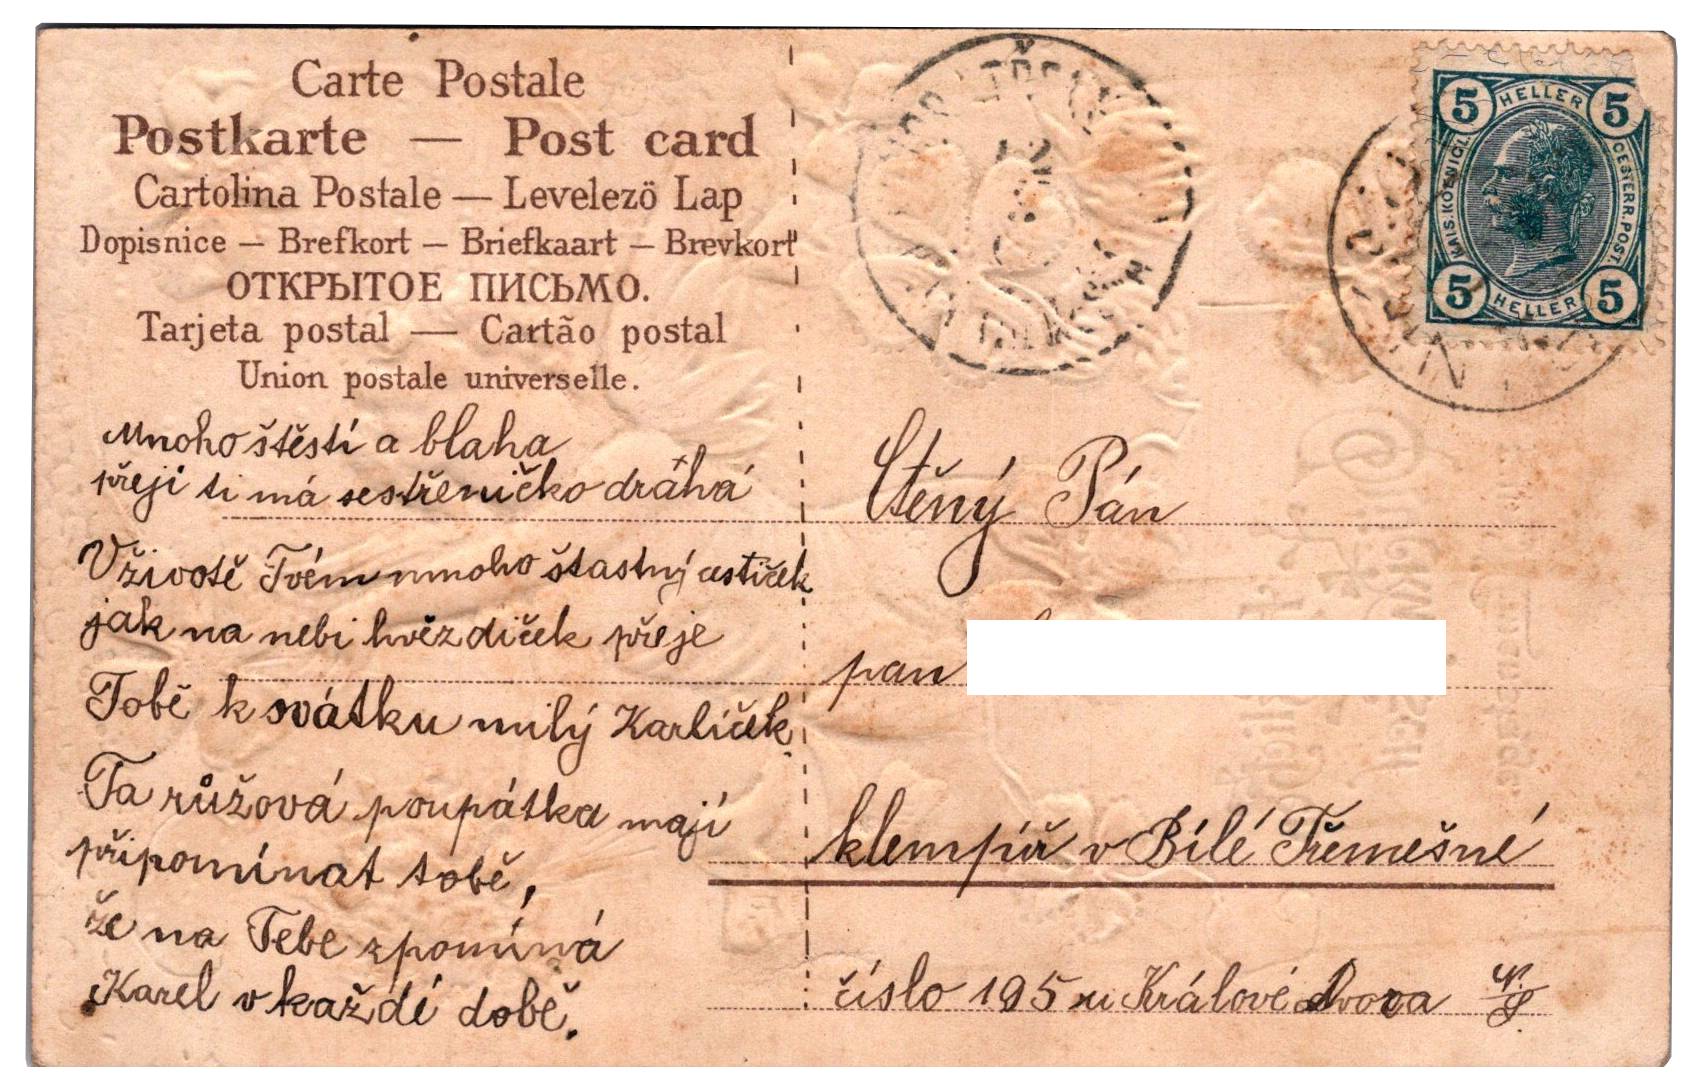 Carte Postale
Postkarte — Post card
Cartolina Postale — Levelezö Lap
Dopisnice — Brefkort — Briefkaart — Brevkort
ОТКРЫТОЕ ПИСЬМО.
Tarjeta postal — Cartão postal
Union postale universelle.
Mnoho štěstí a blaha
přeji ti má sestřeničko dráhá
V životě Tvém mnoho šťastný
jak na nebi hvězdiček přeje
Tobě k svátku milý Karlíček
Ta růžová poupátka mají
připomínat tobě,
že na Tebe zpomíná
Karel v každé době.
5 HELLER 5
KAIS. KOENIGL. OESTERR. POST.
5 HELLER 5
Ctěný Pán
pan
klempíř v Bílé Třemešné
číslo 195 u Králové Dvora